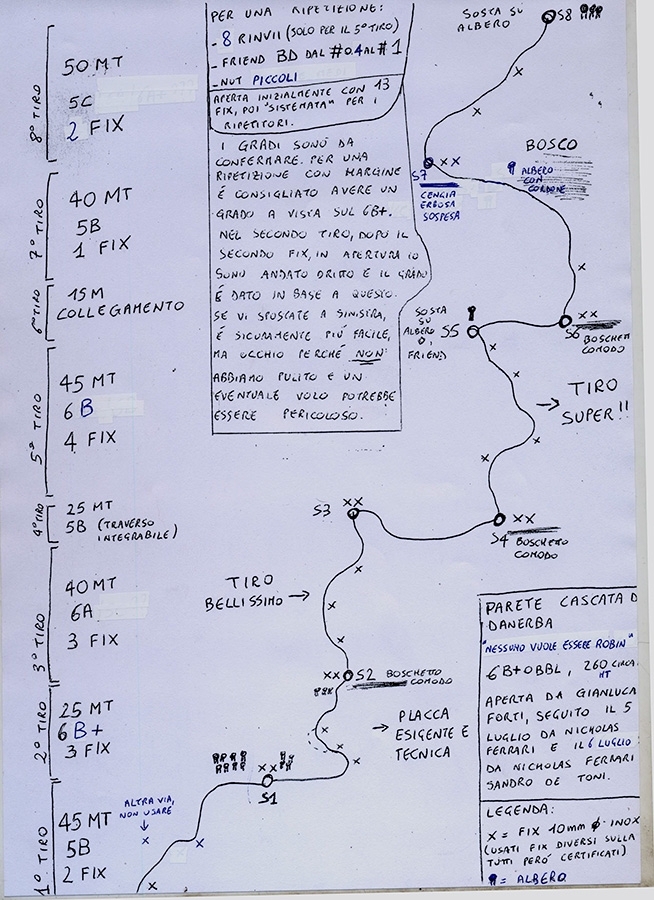 PER UNA RIPETIZIONE:
- 8 RINVII (SOLO PER IL 5° TIRO)
- FRIEND BD DAL #0.4 AL #1
- NUT PICCOLI
APERTA INIZIALMENTE CON 13
FIX, POI "SISTEMATA" PER I
RIPETITORI.
I GRADI SONO DA
CONFERMARE. PER UNA
RIPETIZIONE CON MARGINE
É CONSIGLIATO AVERE UN
GRADO A VISTA SUL 6B+.
NEL SECONDO TIRO, DOPO IL
SECONDO FIX, IN APERTURA IO
SONO ANDATO DRITTO E IL GRADO
É DATO IN BASE A QUESTO.
SE VI SPOSTATE A SINISTRA,
É SICURAMENTE PIÚ FACILE,
MA OCCHIO PERCHÉ NON
ABBIAMO PULITO E UN
EVENTUALE VOLO POTREBBE
ESSERE PERICOLOSO.
8° TIRO
50 MT
5C
2 FIX
7° TIRO
40 MT
5B
1 FIX
6° TIRO
15 M
COLLEGAMENTO
5° TIRO
45 MT
6B
4 FIX
4° TIRO
25 MT
5B (TRAVERSO
INTEGRABILE)
3° TIRO
40 MT
6A
3 FIX
2° TIRO
25 MT
6B+
3 FIX
1° TIRO
45 MT
5B
2 FIX
SOSTA SU
ALBERO
S8
BOSCO
S7
CENGIA
ERBOSA
SOSPESA
ALBERO
CON
CORDONE
SOSTA
SU
ALBERO
O
FRIEND
S5
S6
BOSCHETTO
COMODO
TIRO
SUPER!!
S3
S4
BOSCHETTO
COMODO
TIRO
BELLISSIMO
S2
BOSCHETTO
COMODO
PLACCA
ESIGENTE E
TECNICA
S1
ALTRA VIA,
NON USARE
PARETE CASCATA D
DANERBA
"NESSUNO VUOLE ESSERE ROBIN"
6B+ OBBL, 260 CIRCA
MT
APERTA DA GIANLUCA
FORTI, SEGUITO IL 5
LUGLIO DA NICHOLAS
FERRARI E IL 6 LUGLIO
DA NICHOLAS FERRARI
SANDRO DE TONI.
LEGENDA:
X = FIX 10mm φ INOX
(USATI FIX DIVERSI SULLA
TUTTI PERÓ CERTIFICATI)
= ALBERO